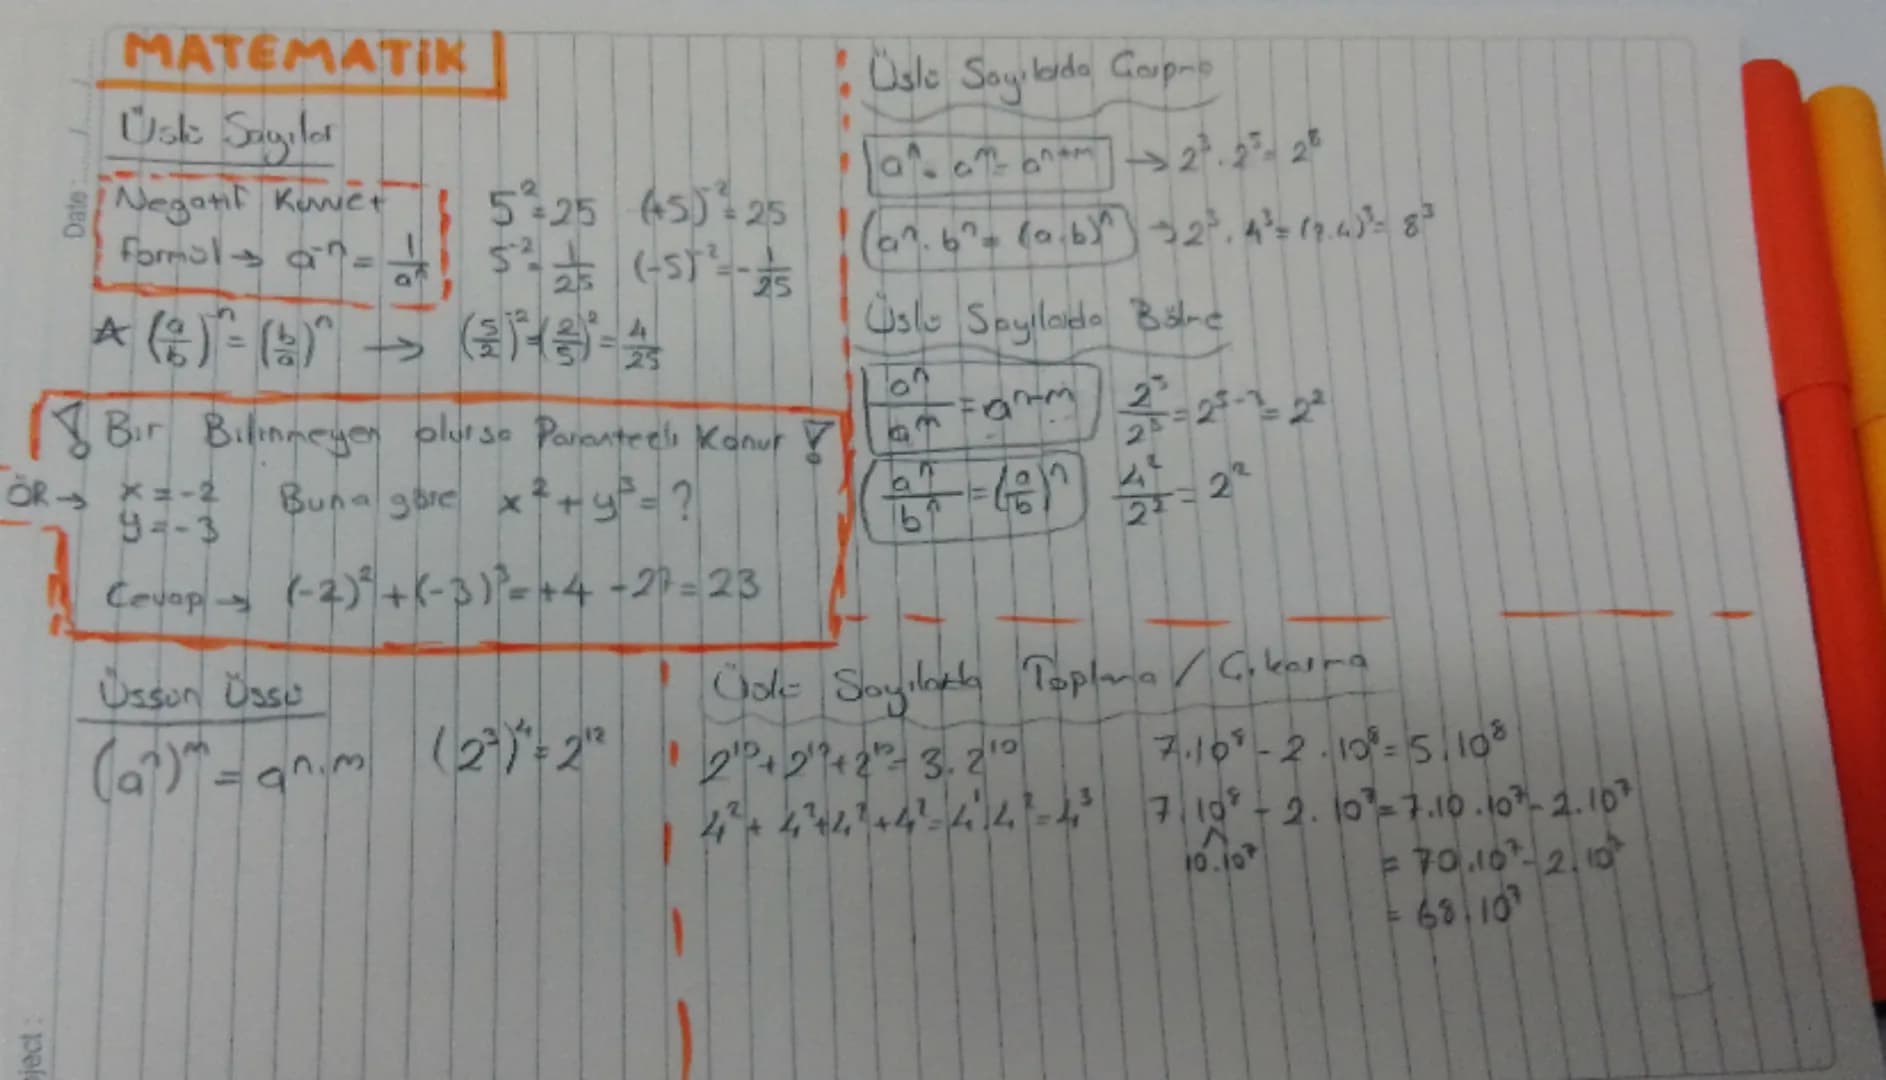 MATEMATİK
Üslü Sayılar
Negatif Kuvvet
formül → a⁻ⁿ = 1/aⁿ
5² = 25 (+5)⁻² = 25
5⁻² = 1/25 (-5)⁻² = -1/25
☆ (a/b)⁻ⁿ = (b/a)ⁿ → (5/2)⁻² = (2/5)² = 4/25
! Bir Bilinmeyen olursa Parantezli Konur !
ÖR → x = -2 Buna göre x² + y³ = ?
y = -3
Cevap → (-2)² + (-3)³ = +4 - 27 = 23
Üslü Sayılarda Çarpma
aⁿ . aᵐ = aⁿ⁺ᵐ → 2³ . 2⁵ = 2⁸
aⁿ . bⁿ = (a.b)ⁿ → 2³ . 4³ = (2.4)³ = 8³
Üslü Sayılarda Bölme
aⁿ/aᵐ = aⁿ⁻ᵐ 2⁵/2³ = 2⁵⁻³ = 2²
aⁿ/bⁿ = (a/b)ⁿ 4²/2² = 2²
Üssün Üssü
(aⁿ)ᵐ = aⁿ·ᵐ (2³)⁴ = 2¹²
Üslü Sayılarda Toplama / Çıkarma
2¹⁰ + 2¹⁰ + 2¹⁰ = 3 . 2¹⁰
4² + 4² + 4² + 4² = 4¹ . 4² = 4³
7.10⁸ - 2 . 10⁸ = 5 . 10⁸
7.10⁸ - 2 . 10⁷ = 7.10 .10⁷ - 2.10⁷
10.10⁷ = 70.10⁷ - 2.10⁷
= 68.10⁷
Date: